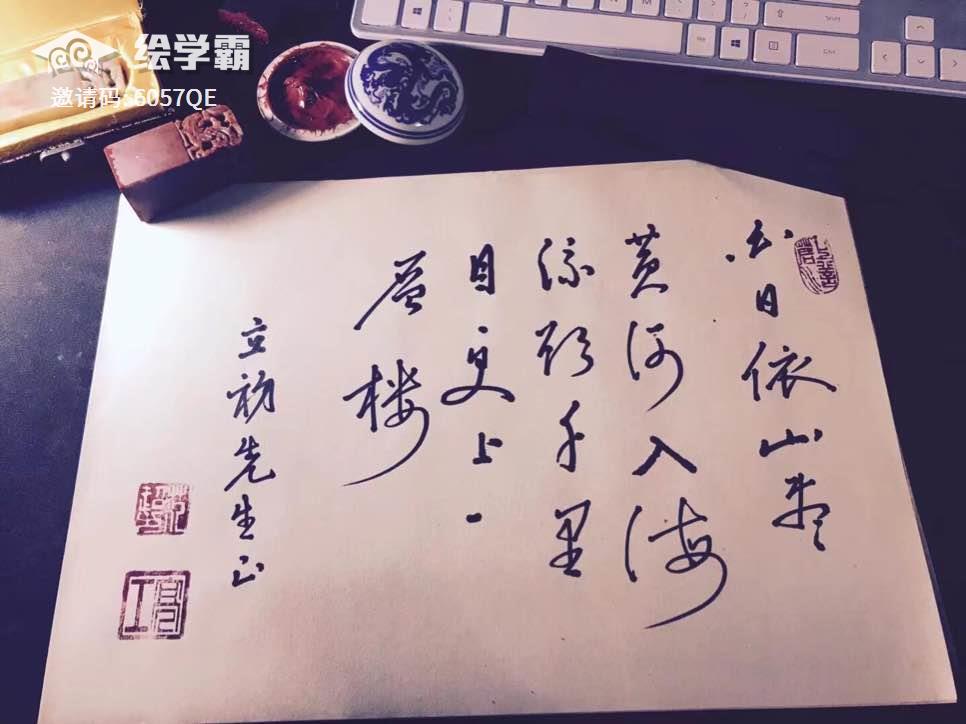 绘学霸
邀请码:6057QE
白日依山尽
黄河入海
流欲千里
目更上一
层楼
立初先生正